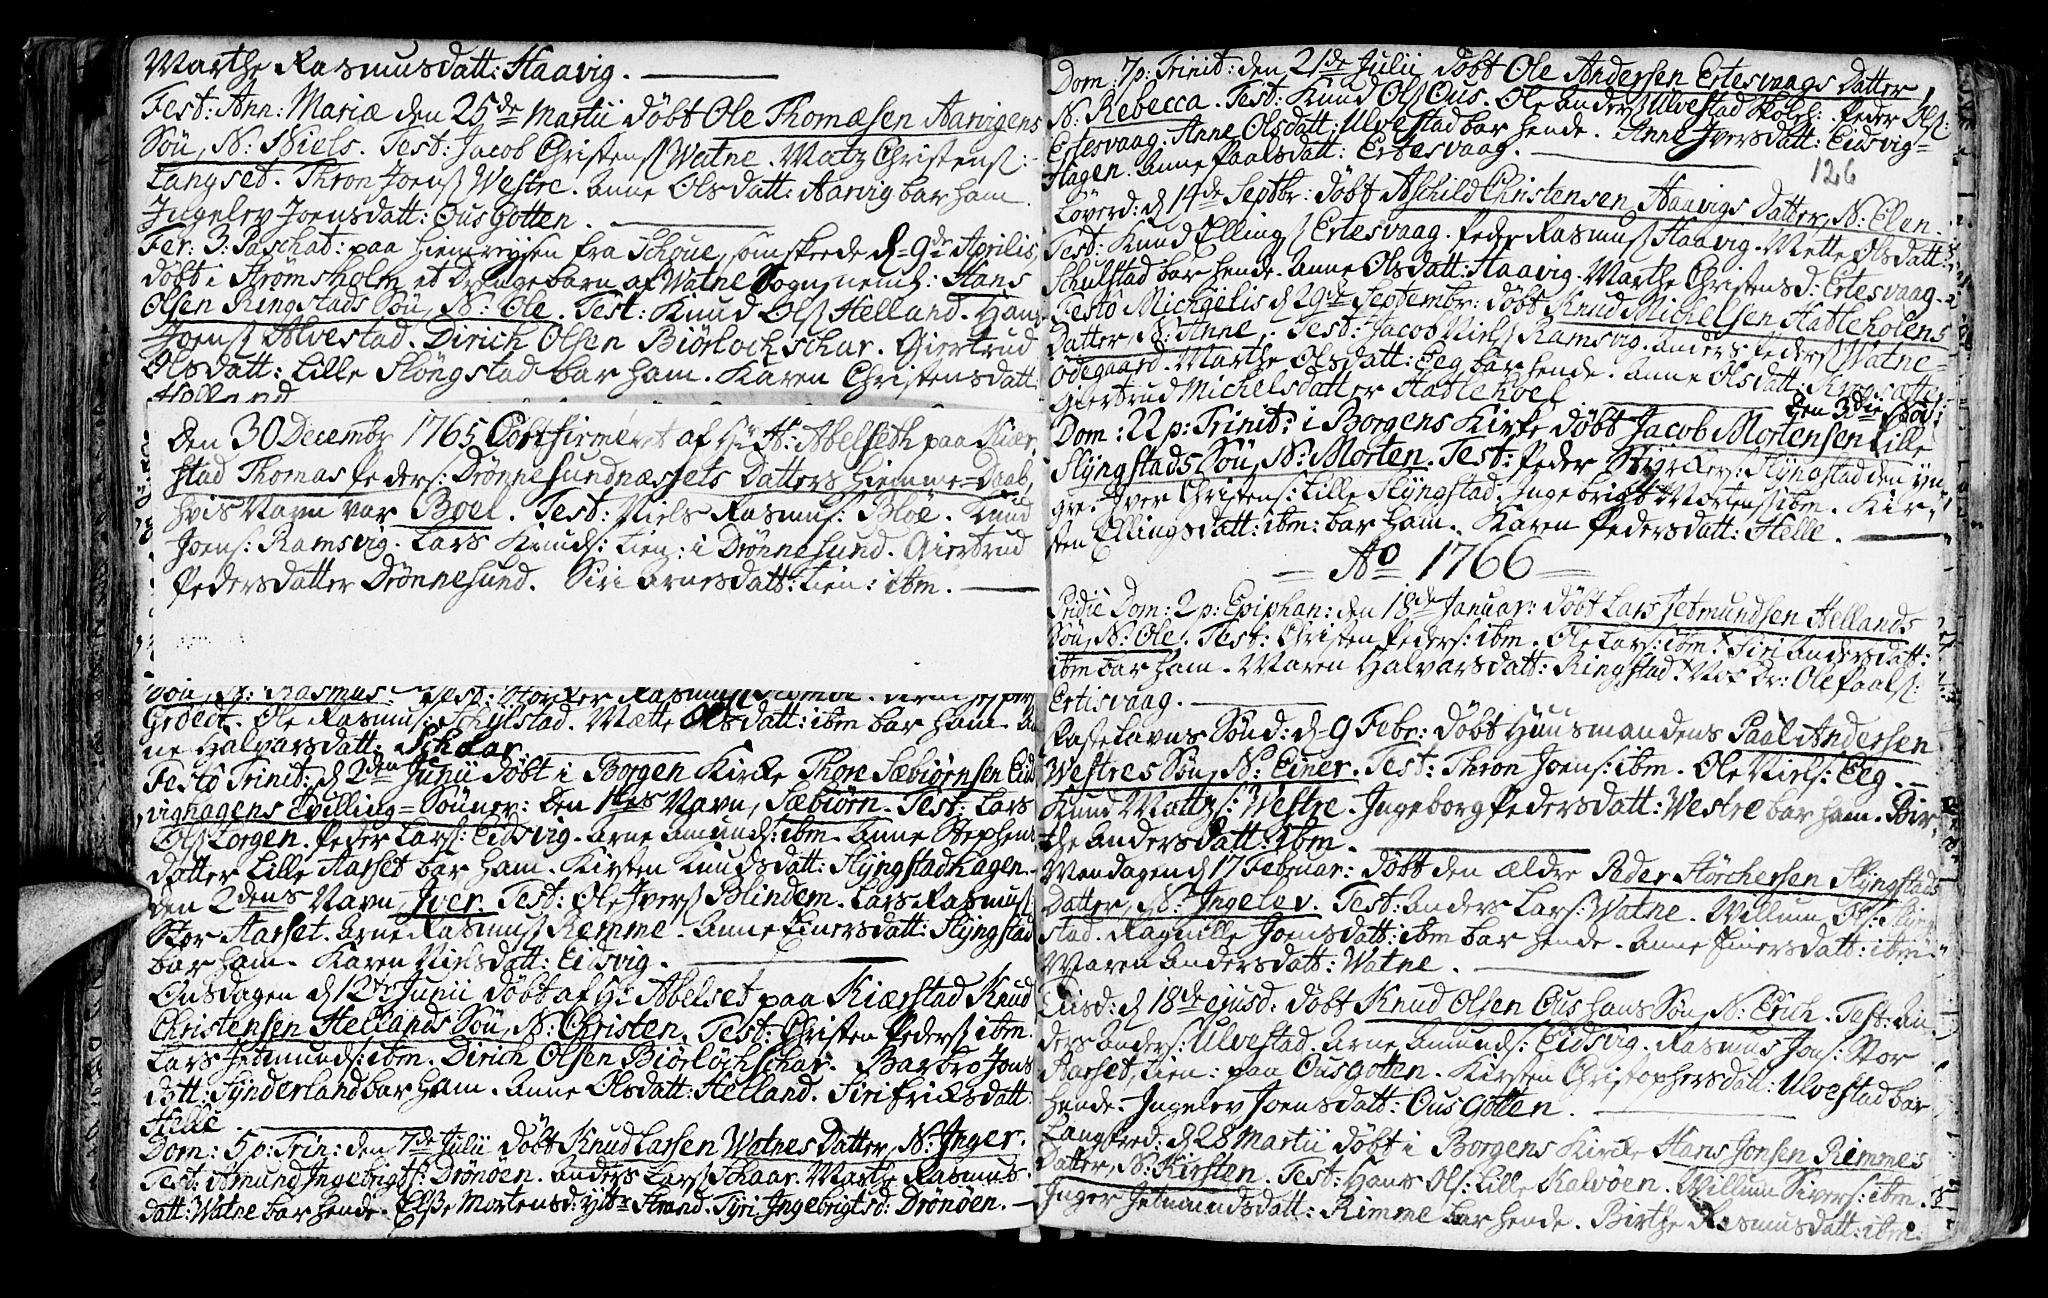 Marthe Rasmusdatt: Haavig.
Fest: Ann: Mariæ den 25de Martii döbt Ole Thomæsen Aarvigens
Sön, N: Niels. Test: Jacob Christens: Watne. Matz Christens:
Langset. Thron Joens: Westre. Anne Olsdatt: Aarvig bar ham.
Ingelev Joensdatt: Ousgotten.
Fer: 3: Paschat: paa hiemrejsen fra Schoue, som skeede d. 9de Aprilis,
döbt i Strömsholm et Drengebarn af Watne Sogn, neml: Hans
Olsen Ringstads Sön, N: Ole. Test: Knud Ols: Helland. Hans
Joens: Alvestad. Dirich Olsen Biörlochschar. Giertrud
Olsdatt: Lille Slöngstad bar ham. Karen Christensdatt:
Helland.
Den 30 Decembr 1765 Confirmeret af Hr A: Abelseth paa Kiær-
stad Thomas Peders: Drönnesundnæssets Datters hiemme-Daab,
hvis Navn var Boel. Test: Niels Rasmus: Bloe. Knud
Joens: Ramsvig. Lars Knuds: tien: i Drönnesund. Giertrud
Pedersdatter Drönnesund. Siri Arnesdatt: tien: ibm.
Sön, N: Rasmus. Test: Rasmus:
Gröedt. Ole Rasmus: Schylstad. Mætte Olsdatt: ibm bar ham. An-
ne Halvarsdatt: Scholar.
Festo Trinit: d. 2den Junii döbt i Borgen Kircke Thore Sæbiörnsen Eids-
vighagens Tvilling-Sönner: Den 1stes Navn, Sæbiörn. Test: Lars
Ols: Lorgen. Peder Lars: Eidsvig. Arne Amunds: ibm. Anne Stephens
datter Lille Aarset bar ham. Kirsten Knudsdatt: Slyngstadhagen.
Den 2dens Navn, Jver. Test: Ole Jvers: Blindem. Lars Rasmus:
Stor Aarset. Arne Rasmus: Remme. Anne Einersdatt: Slyngstad
bar ham. Karen Nielsdatt: Eidsvig.
Onsdagen d. 12te Junii döbt af Hr Abelset paa Kiærstad Knud
Christensen Hellands Sön, N: Christen. Test: Christen Peders: ibm.
Lars Jetmunds: ibm. Dirich Olsen Biörlöchschar. Barbro Jons
datt: Synderland bar ham. Anne Olsdatt: Helland. Siri Fricksdatt
Helle
Dom: 5 p: Trin: den 7de Julii döbt Knud Larsen Watnes Datter, N: Inger.
Test: Amund Ingebrigts: Drönoen. Anders Lars: Schaar. Marthe Rasmus-
datt: Watne bar hende. Else Mortensd: Ytre Strand. Tyri Ingebrigtsd: Drönoen.
Dom: 7 p: Trinit: den 21de Julii döbt Ole Andersen Ertesvaags Datter,
N: Rebecca. Test: Knud Ols: Ous. Ole Anders: Ulvestad Skolel: Peder Ols:
Ertesvaag. Anne Olsdatt: Ulvestad bar hende. Anne Jversdatt: Eidsvig-
Hagen. Anne Paalsdatt: Ertesvaag.
126
Löverd: d. 14de Septbr: döbt Aschild Christensen Haavigs Datter, N: Elen.
Test: Knud Ellings: Ertesvaag. Peder Rasmus: Haavig. Mette Olsdatt:
Schulstad bar hende. Anne Olsdatt: Haavig. Marthe Christensd: Ertesvaag.
Festo Michaelis d. 29de Septembr: döbt Knud Michelsen Hatleholens
Datter, N: Anne. Test: Jacob Niels: Ramsvig. Anders Peders: Watne-
Ödegaard. Marthe Olsdatt: Eeg bar hende. Anne Olsdatt:
Giertrud Michelsdatter Hatlehoel
Dom: 22 p: Trinit: i Borgens Kirke döbt den 3die Nov: Jacob Mortensen Lille
Slyngstads Sön, N: Morten. Test: Peder Slyngstad den yn-
gre. Jver Christens: Lille Slyngstad. Ingebrigt Mortens: ibm. Kir-
sten Ellingsdatt: ibm: bar ham. Karen Pedersdatt: Helle.
Ao 1766
Pridie Dom: 2 p: Epiphan: den 18de Januar: döbt Lars Jetmundsen Hellands
Sön, N: Ole. Test: Christen Peders: ibm. Ole Lars: ibm. Siri Andersdatt:
ibm bar ham. Maren Halvarsdatt: Ringstad. Ole Paals:
Ertisvaag.
Fastelavns Sönd: d. 9 Febr: döbt Huusmandens Paal Andersen
Westres Sön, N: Einer. Test: Thron Joens: ibm. Ole Niels: Eeg.
Knud Mattz: Westre. Ingeborg Pedersdatt: Westre bar ham. Bir-
the Andersdatt: ibm.
Mandagen d. 17 Februar: döbt den ældre Peder Störchersen Slyngstads
Datter, N: Ingelev. Test: Anders Lars: Watne. Willum Ols: Slyng-
stad. Ragnille Joensdatt: ibm bar hende. Anne Einersdatt: ibm
Maren Andersdatt: Watne.
Tiisd: d. 18de ejusd: döbt Knud Olsen Ous hans Sön, N: Erich. Test: An-
ders Anders: Ulvestad. Arne Amunds: Eidsvig. Rasmus Jons: Stor
Aarset, tien: paa Ousgotten. Kirsten Christophersdatt: Ulvestad bar
hende. Ingelev Joensdatt: Ousgotten.
Langfred: d. 28 Martii döbt i Borgens Kircke Hans Jonsen Remmes
Datter, N: Kirsten. Test: Hans Ols: Lille Kalvöen. Willum Sivers: ibm.
Inger Jetmundsdatt: Rimme bar hende. Birthe Rasmusdatt: ibm.